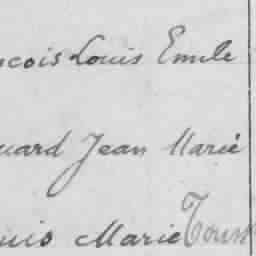 ncois Louis Emile
uard Jean Marie
uis Marie Touss